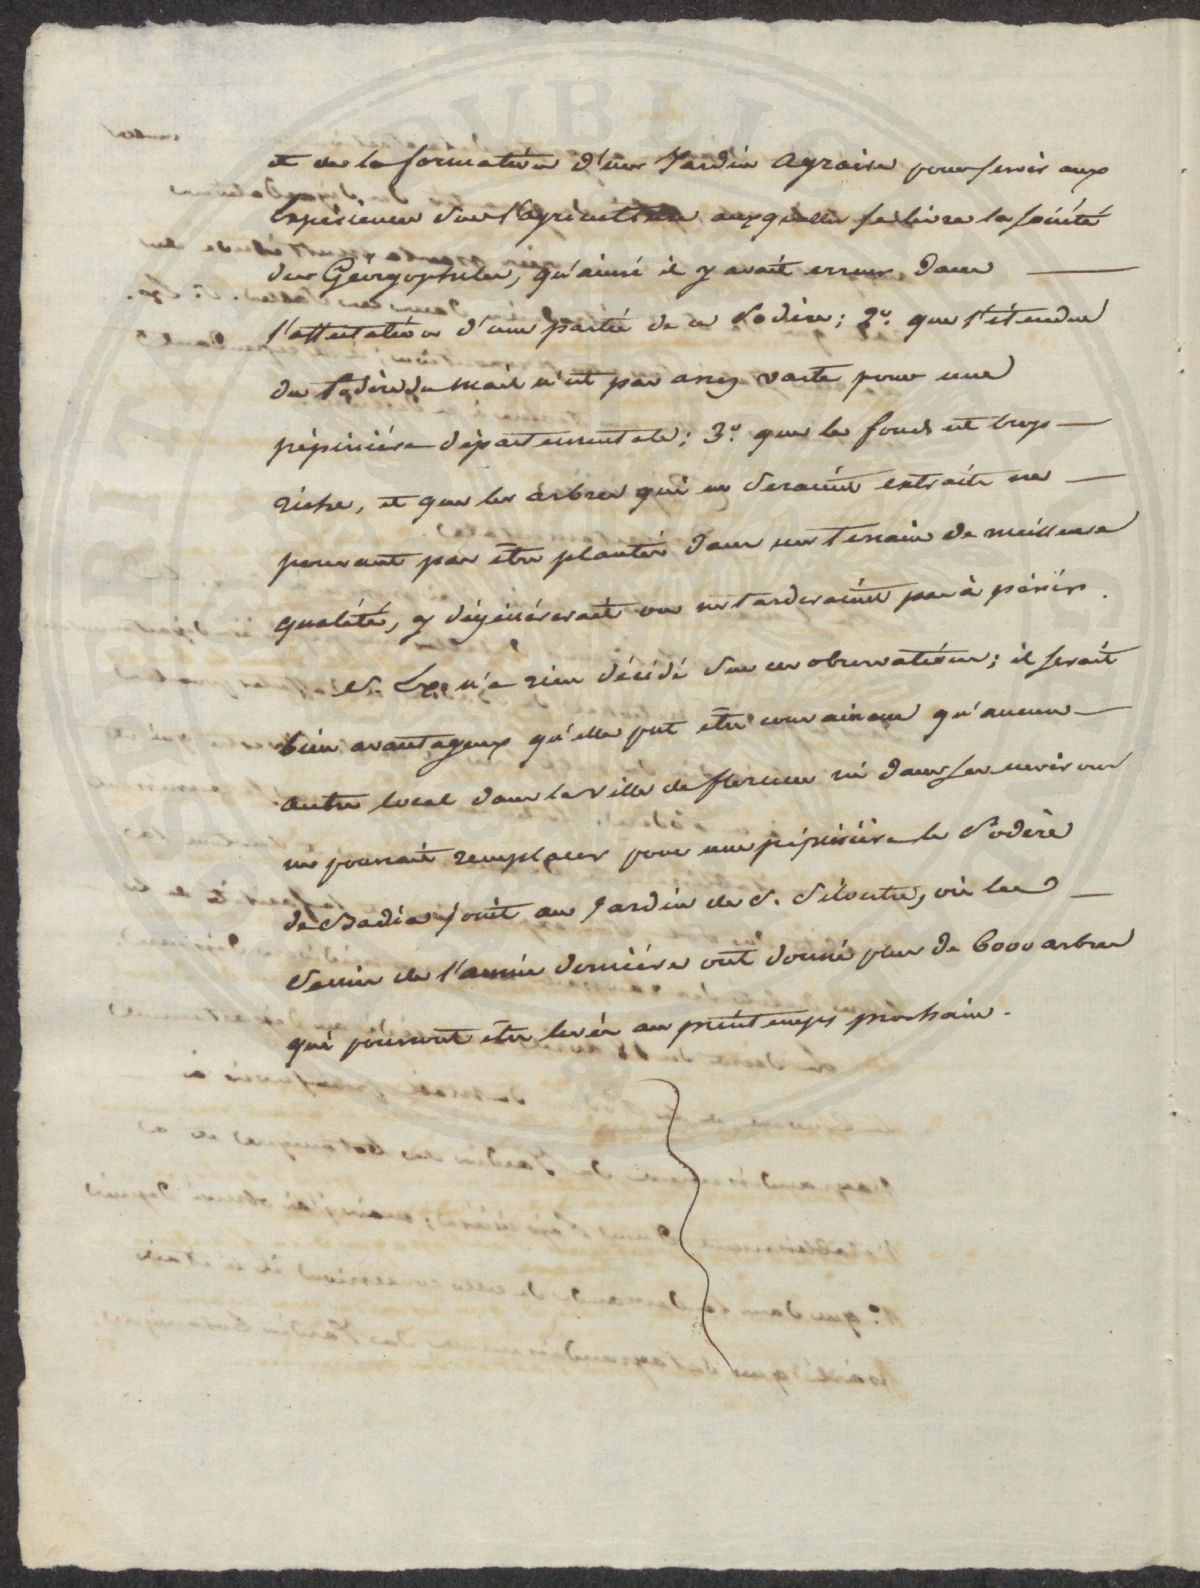 et de la formation d'un Jardin Agraire pour servir aux
Expériences sur l'agriculture auxquelles se livre la société
des Georgophiles, qu'ainsi il y avait erreur dans
l'affectation d'une partie de ce Podère; 2°. que l'étendue
du Podère du Mail n'est pas assez vaste pour une
pépinière départementale; 3°. que le fonds est trop
riche, et que les arbres qui en seraient extraits ne
pouvant pas être plantés dans un terrain de meilleure
qualité, y dégénéreraient ou ne tarderaient pas à périr.
S. Ex. n'a rien décidé sur ces observations; il serait
bien avantageux qu'elle put être convaincue qu'aucun
autre local dans la ville de florence ni dans ses environs
ne pourrait remplacer pour une pépinière le Podère
de Badia joint au Jardin de S. Silvestre, où les
semis de l'année dernière ont donné plus de 6000 arbres
qui pourront être levés au printemps prochain.